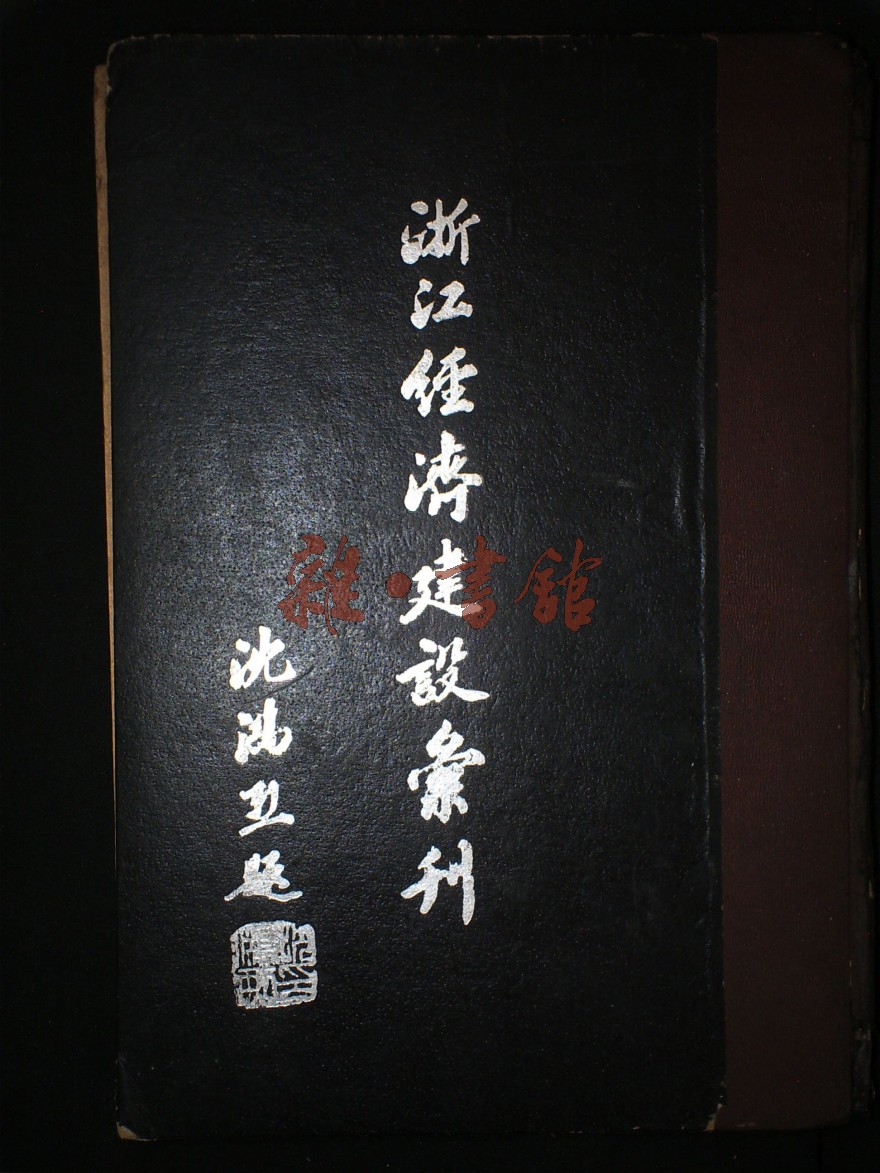 浙江經濟建設彙刊
沈鴻烈題
雜·書館